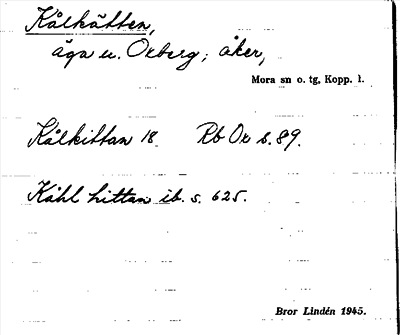 Kålkätten,
äga u. Oxberg; åker,
Mora sn o. tg, Kopp. l.
Kålkittan 18 Rb Or s. 89.
Kåhl hittan ib. s. 625.
Bror Lindén 1945.